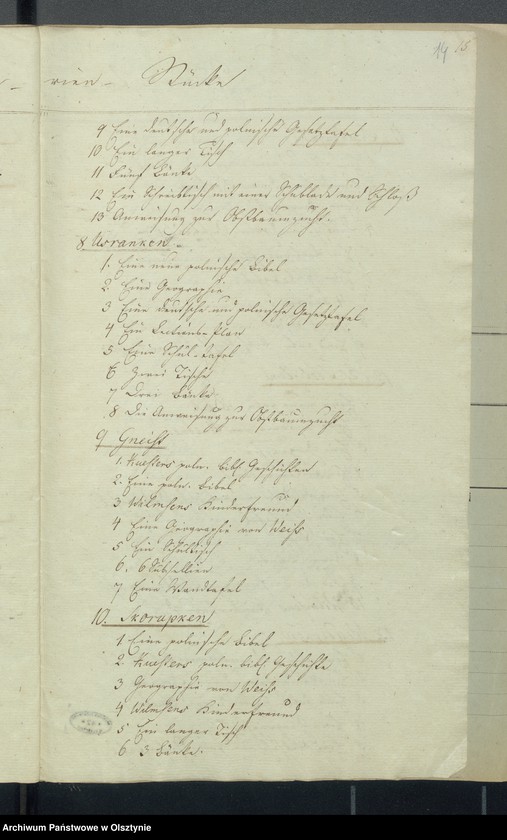 14 15
rien – Stücke
9 Eine deutsche und polnische Gesetztafel
10 Ein langer Tisch
11 Fünf Bänke
12 Ein Schreibtisch mit einer Schublade und Schloß
13 Anweisung zur Obstbaumzucht.
8. Usranken.
1. Eine neue polnische Bibel
2. Eine Geographie
3 Eine deutsche und polnische Gesetztafel
4 Ein Lections-Plan
5 Eine Schul-tafel
6 Zwei Tische
7 Drei Bänke
8 Die Anweisung zur Obstbaumzucht
9 Gneist
1. Huebners poln. bibl Geschichten
2. Eine poln. Bibel
3 Wilmsens Kinderfreund
4 Eine Geographie von Weiss
5 Ein Schultisch
6. 6 Subsellien
7 Eine Wandtafel
10. Skorupken
1 Eine polnische Bibel
2 Huebners poln. bibl Geschichte
3 Geographie von Weiss
4 Wilmsens Kinderfreund
5 Ein langer Tisch
6 3 Bänke.
Archiwum Państwowe w Olsztynie